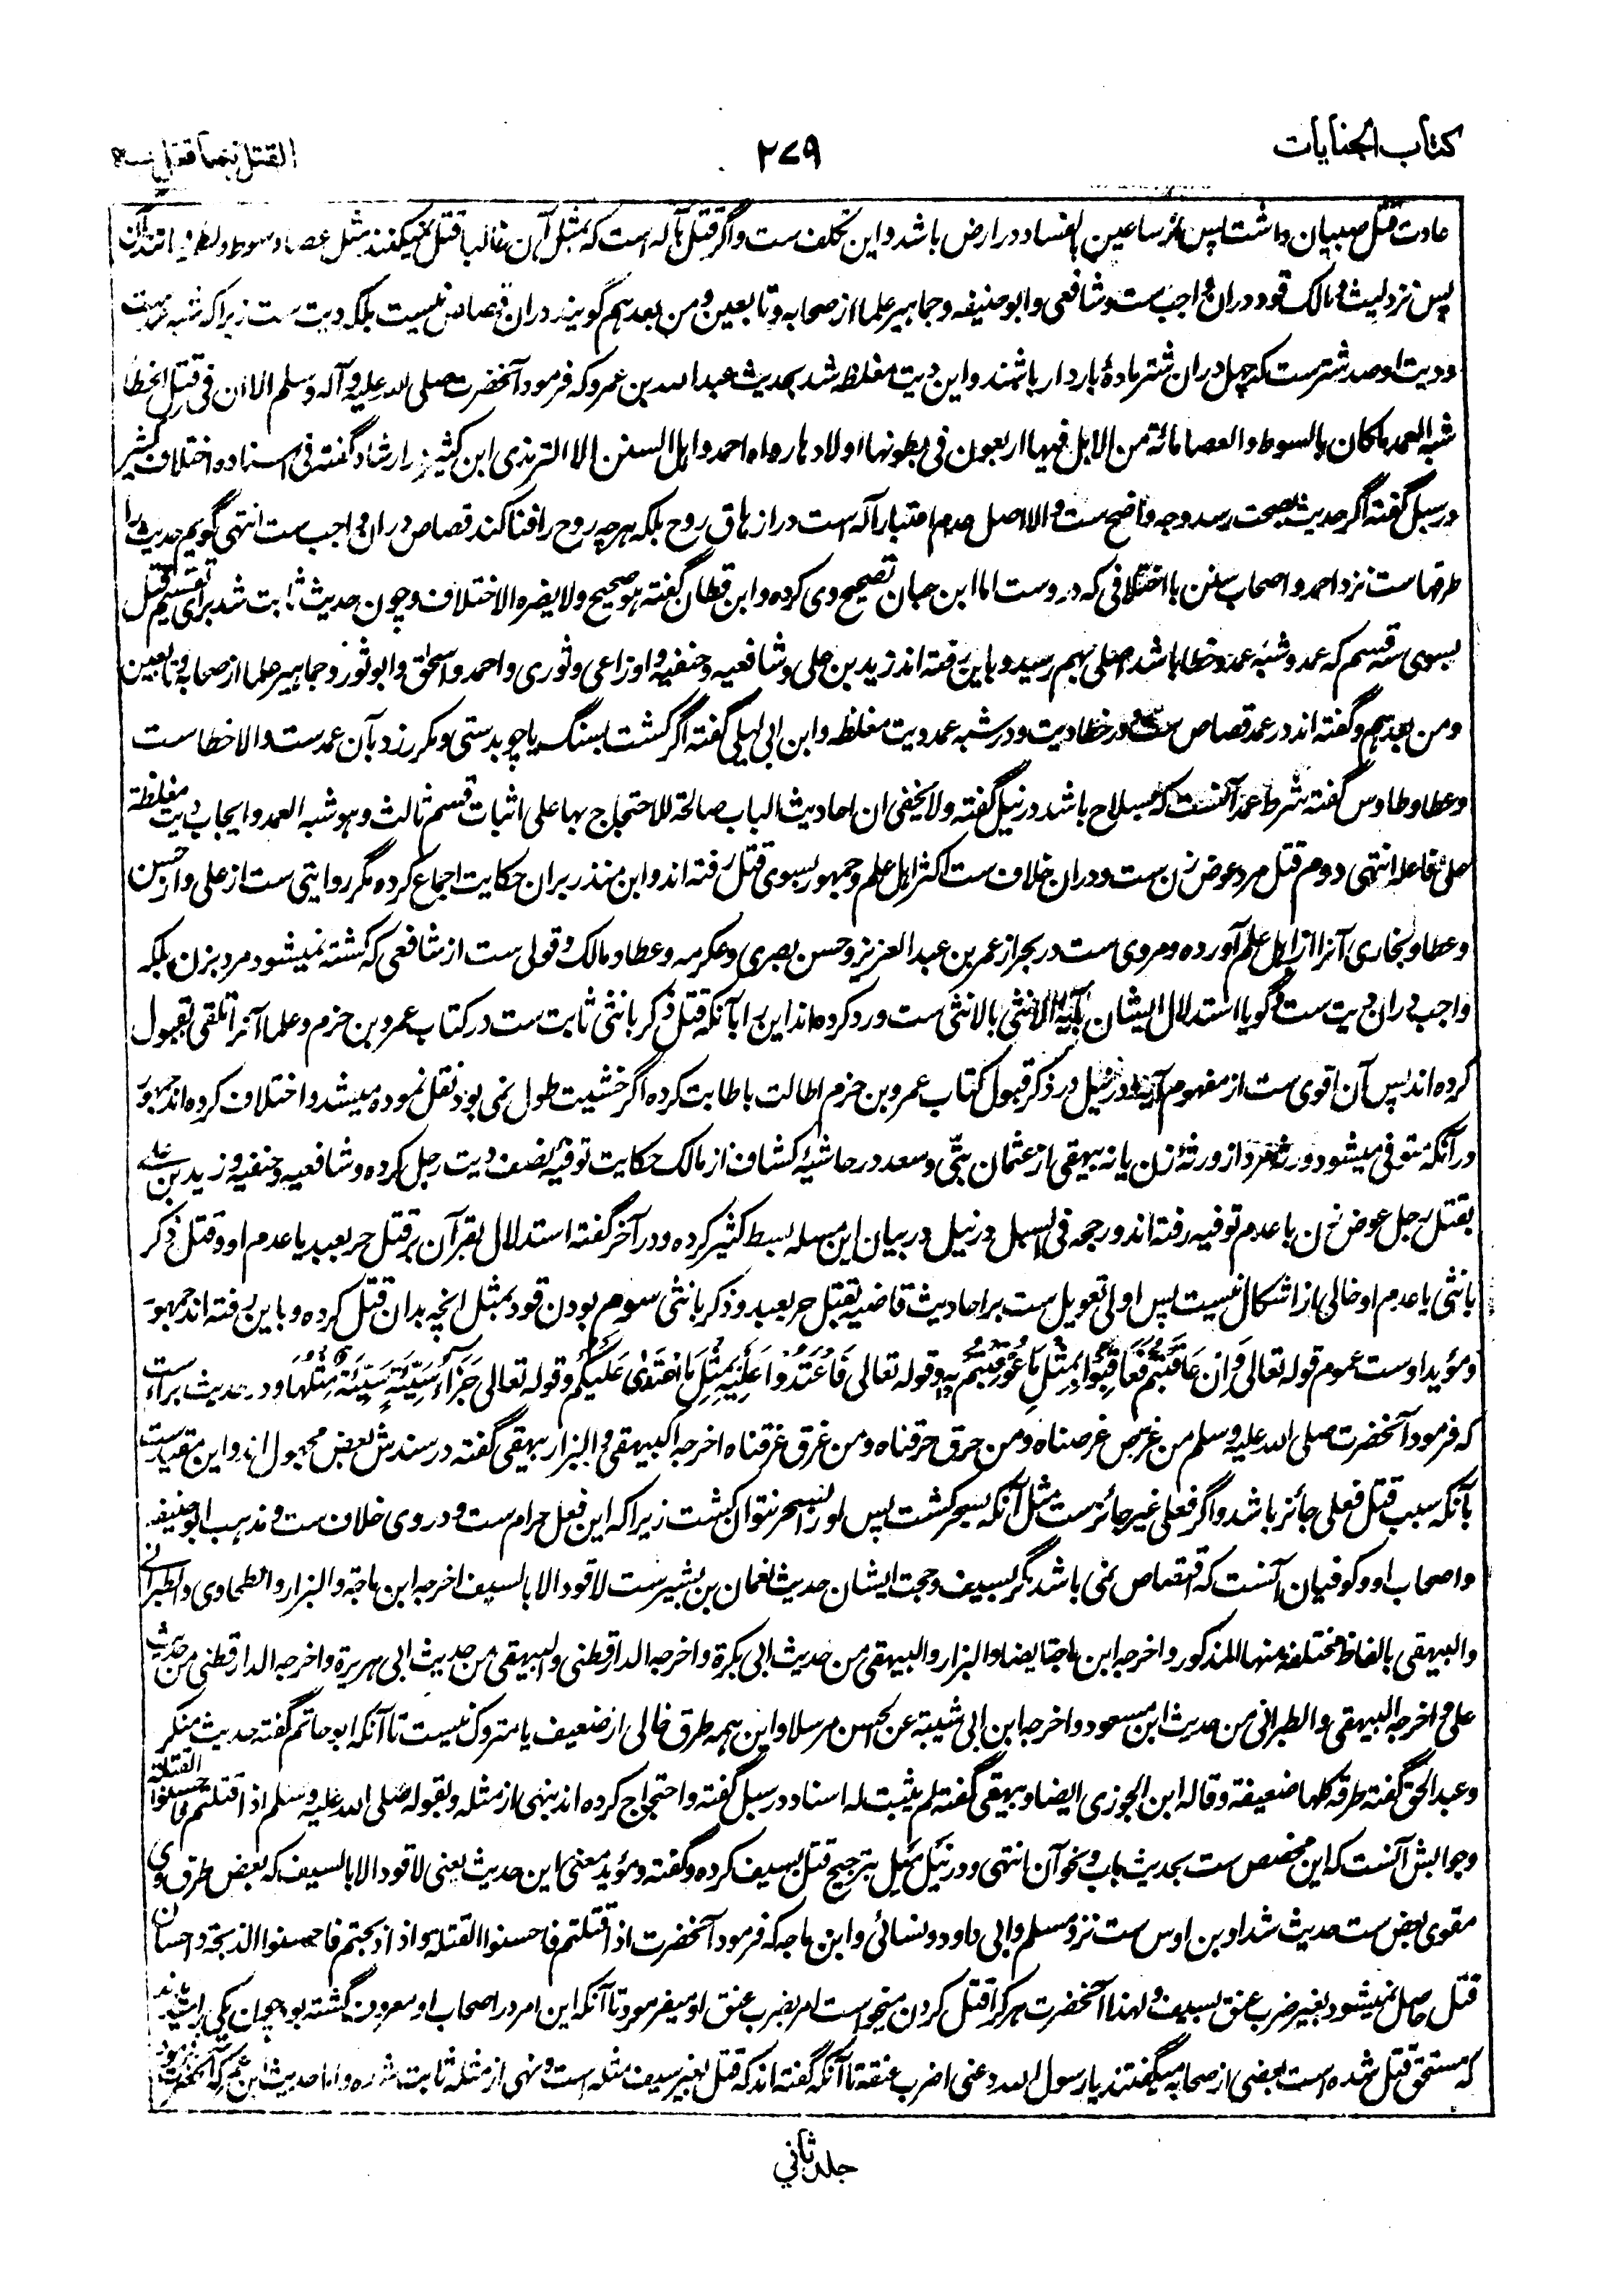 كتاب الجنايات
٢٧٩
القتل بما قتل به
عادت قتل صبیان داشت پس از ساعین بفساد در ارض باشد و این تکلف ست و اگر قتل بآله است که بمثل آن غالبا قتل نمیکنند مثل عصا و سوط و لطمه و مانند آن
پس نزد لیث و مالک قود دران واجب ست و شافعی و ابو حنیفه و جماهیر علما از صحابه و تابعین و من بعدهم گویند دران قصاص نیست بلکه دیت ست زیرا که شبه عمد ست
و دیت او صد شترست که چهل دران شتر مادهٔ باردار باشند و این دیت مغلظه شد بحدیث عبد الله بن عمرو که فرمود آنحضرت صلی الله علیه و آله وسلم الا ان فی قتل الخطا
شبه العمد ما کان بالسوط و العصا مائة من الابل فیها اربعون فی بطونها اولادها رواه احمد و اهل السنن الا الترمذی ابن کثیر در ارشاد گفته فی اسناده اختلاف کثیر
در سبل گفته اگر حدیث بصحت رسد وجه واضح ست و الا اصل عدم اعتبار آله است در ازهاق روح بلکه هر چه روح را فنا کند قصاص دران واجب ست انتهی گویم حدیث را
طرقهاست نزد احمد و اصحاب سنن با اختلافی که دروست اما ابن حبان تصحیح وی کرده و ابن قطان گفته هو صحیح ولا یضره الاختلاف و چون حدیث ثابت شد برای تقسیم قتل
بسوی سه قسم که عمد و شبه عمد و خطا باشد اصلی بهم رسید و باین رفته اند زید بن علی و شافعیه و حنفیه و اوزاعی و ثوری و احمد و اسحاق و ابو ثور و جماهیر علما از صحابه و تابعین
و من بعدهم و گفته اند در عمد قصاص ست و در خطا دیت و در شبه عمد دیت مغلظه و ابن ابی لیلی گفته اگر کشت بسنگ یا چوبدستی و مکرر زد بآن عمدست و الا خطاست
و عطا و طاوس گفته شرط عمد آنست که بسلاح باشد در نیل گفته ولا یخفی ان احادیث الباب صالحة للاحتجاج بها علی اثبات قسم ثالث و هو شبه العمد و ایجاب دیت مغلظة
علی فاعله انتهی دوم قتل مرد عوض زن ست و دران خلاف ست اکثر اهل علم و جمهور بسوی قتل رفته اند و ابن منذر بران حکایت اجماع کرده مگر روایتی ست از علی و از حسن
و عطا و بخاری آنرا از اهل علم آورده و مروی ست در بحر از عمر بن عبد العزیز و حسن بصری و عکرمه و عطا و مالک و قولی ست از شافعی که کشته نمیشود مرد بزن بلکه
واجب دران دیت ست و گویا استدلال ایشان بآیه الانثی بالانثی ست و رد کرده اند این را بآنکه قتل ذکر بانثی ثابت ست در کتاب عمرو بن حزم و علما آنرا تلقی بقبول
کرده اند پس آن اقوی ست از مفهوم آیه و در نیل در ذکر قبول کتاب عمرو بن حزم اطالت باطابت کرده اگر خشیت طول نمی بود نقل نموده میشد و اختلاف کرده اند جمهور
در آنکه متوفی میشود ورثهٔ مرد از ورثهٔ زن یا نه بیهقی از عثمان بتی و سعد در حاشیهٔ کشاف از مالک حکایت توفیه نصف دیت رجل کرده و شافعیه و حنفیه و زید بن علی
بقتل رجل عوض زن با عدم توفیه رفته اند و رجحه فی السبل و در نیل در بیان این مسئله بسط کثیر کرده و در آخر گفته استدلال بقرآن بر قتل حر بعبد یا عدم او و قتل ذکر
بانثی یا عدم او خالی از اشکال نیست پس اولی تعویل ست بر احادیث قاضیه بقتل حر بعبد و ذکر بانثی سوم بودن قود بمثل انچه بدان قتل کرده و باین رفته اند جمهور
و مؤید اوست عموم قوله تعالی وَ اِن عَاقَبتُم فَعَاقِبُوا بِمِثلِ مَا عُوقِبتُم بِهِ و قوله تعالی فَاعتَدُوا عَلَیهِ بِمِثلِ مَا اعتَدَی عَلَیکُم و قوله تعالی جَزَآءُ سَیِّئَةٍ سَیِّئَةٌ مِثلُهَا و در حدیث براءست
که فرمود آنحضرت صلی الله علیه وسلم من غرض غرضناه و من حرق حرقناه و من غرق غرقناه اخرجه البیهقی و البزار بیهقی گفته در سندش بعض مجهول اند و این مقیدست
بآنکه سبب قتل فعلی جائز باشد و اگر فعلی غیر جائزست مثل آنکه بسحر کشت پس او را بسحر نتوان کشت زیرا که این فعل حرام ست و در وی خلاف ست و مذهب ابو حنیفه
و اصحاب او و کوفیان آنست که اقتصاص نمی باشد مگر بسیف و حجت ایشان حدیث نعمان بن بشیرست لا قود الا بالسیف اخرجه ابن ماجة و البزار و الطحاوی و الطبرانی
و البیهقی بالفاظ مختلفه منها المذکور و اخرجه ابن ماجة ایضا و البزار و البیهقی من حدیث ابی بکرة و اخرجه الدارقطنی و البیهقی من حدیث ابی هریرة و اخرجه الدارقطنی من حدیث
علی و اخرجه البیهقی و الطبرانی من حدیث ابن مسعود و اخرجه ابن ابی شیبة عن الحسن مرسلا و این همه طرق خالی از ضعیف یا متروک نیست تا آنکه ابو حاتم گفته حدیث منکر
و عبد الحق گفته طرقه کلها ضعیفة و قاله ابن الجوزی ایضا و بیهقی گفته لم یثبت له اسناد در سبل گفته و احتجاج کرده اند بنهی از مثله و بقوله صلی الله علیه وسلم اذا قتلتم فاحسنوا القتلة
و جوابش آنست که این مخصص ست بحدیث باب و نحو آن انتهی و در نیل میل بترجیح قتل بسیف کرده و گفته و مؤید معنی این حدیث یعنی لا قود الا بالسیف که بعض طرق وی
مقوی بعض ست حدیث شداد بن اوس ست نزد مسلم و ابی داود و نسائی و ابن ماجه که فرمود آنحضرت اذا قتلتم فاحسنوا القتلة و اذا ذبحتم فاحسنوا الذبحة و احسان
قتل حاصل نمیشود بغیر ضرب عنق بسیف و لهذا آنحضرت هر کرا قتل کردن میخواست امر بضرب عنق او میفرمود تا آنکه این امر در اصحاب او معروف گشته بود چون یکی را میدیدند
که مستحق قتل شده است بعضی از صحابه میگفتند یا رسول الله دعنی اضرب عنقه تا آنکه گفته اند که قتل بغیر سیف مثله است و نهی از مثله ثابت شده و اما حدیث ابن عمر که آنحضرت فرمود
جلد ثاني